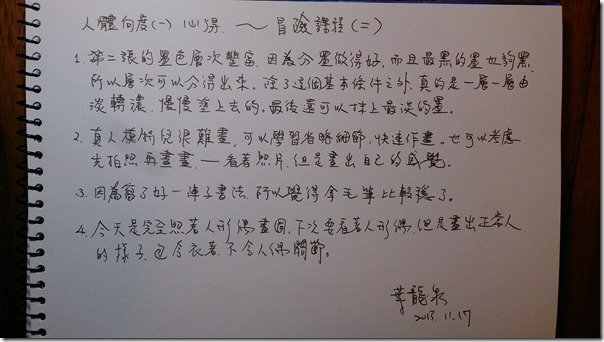 人體向度(一)心得. ～冒險課程(二)
1. 第二張的墨色層次豐富, 因為分墨做得好, 而且最黑的墨也夠黑,
所以層次可以分得出來, 除了這個基本條件之外, 真的是一層一層由
淡轉濃, 慢慢塗上去的. 最後還可以抹上最淡的墨.
2. 真人模特兒很難畫, 可以學習省略細節, 快速作畫. 也可以考慮
先拍照再畫畫, — 看著照片, 但是畫出自己的感覺.
3. 因為寫了好一陣子書法, 所以覺得拿毛筆比較穩了.
4. 今天是完全照著人形偶畫圖, 下次要看著人形偶, 但是畫出正常人
的樣子, 包含衣著, 不含人偶關節。
葉龍
2013. 11.17